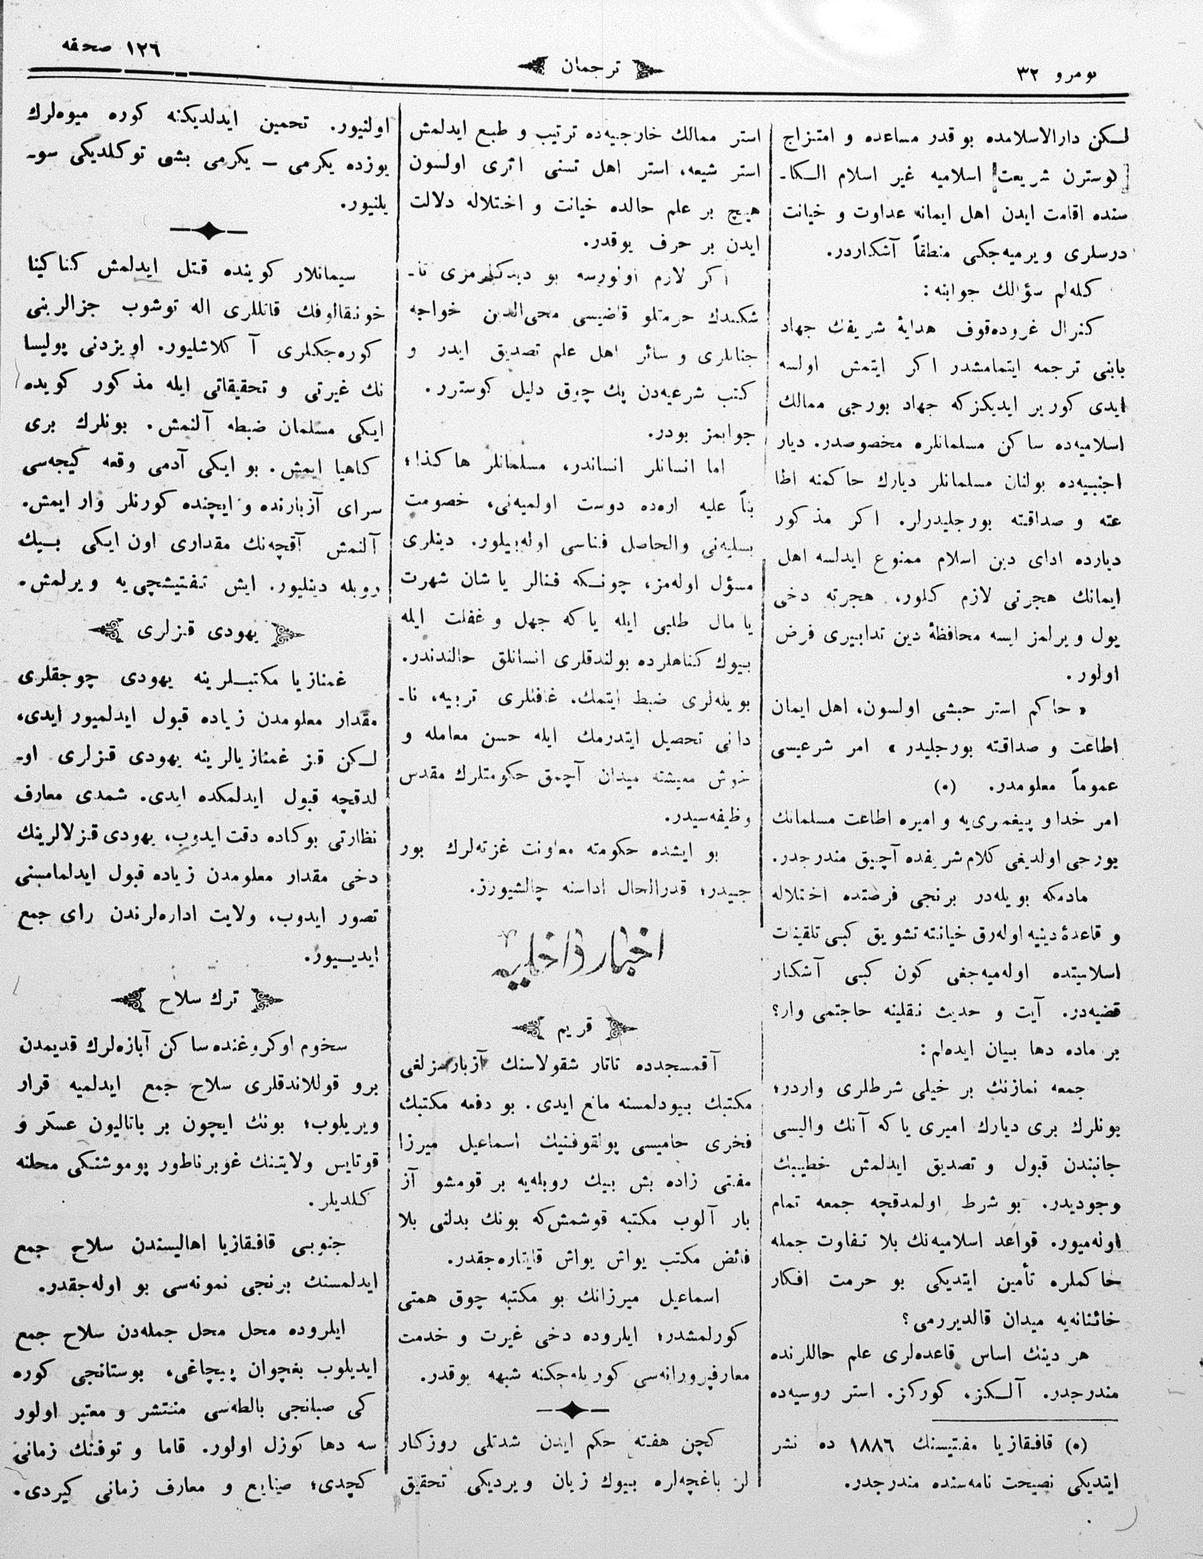 نومرو ٣٢
ترجمان
١٢٦ صحفه
لكن دارالاسلامده بو قدر مساعده و امتزاج
كوسترن شريعت اسلاميه غير اسلام الكا-
سنده اقامت ايدن اهل ايمانه عداوت و خيانت
درسلرى ويرميه‌جكى منطقاً آشكاردر.
كله‌لم سؤالك جوابنه:
كنرال غروده‌قوف هدايهٔ شريفك جهاد
بابنى ترجمه ايتمامشدر اكر ايتمش اولسه
ايدى كورير ايديكزكه جهاد بورجى ممالك
اسلاميه‌ده ساكن مسلمانلره مخصوصدر. ديار
اجنبيه‌ده بولنان مسلمانلر ديارك حاكمنه اطا
عته و صداقته بورجليدرلر. اكر مذكور
ديارده اداى دين اسلام ممنوع ايدلسه اهل
ايمانك هجرتى لازم كلور. هجرته دخى
يول ويرلمز ايسه محافظهٔ دين تدابيرى فرض
اولور.
« حاكم استر حبشى اولسون، اهل ايمان
اطاعت و صداقته بورجليدر » امر شرعيسى
عموماً معلومدر. (٥)
امر خدا و پيغمبرى‌يه و اميره اطاعت مسلمانك
بورجى اولديغى كلام شريفده آچيق مندرجدر.
مادمكه بويله‌در برنجى فرضتده اختلاله
و قاعدهٔ دينيه اوله‌رق خيانته تشويق كبى تلقينات
اسلاميتده اوله‌ميه‌جغى كون كبى آشكار
قضيه‌در. آيت و حديث نقلينه حاجتمى وار؟
بر ماده دها بيان ايده‌لم:
جمعه نمازنك بر خيلى شرطلرى واردر؛
بونلرك برى ديارك اميرى ياكه آنك واليسى
جانبندن قبول و تصديق ايدلمش خطيبك
وجوديدر. بو شرط اولمدقچه جمعه تمام
اوله‌ميور. قواعد اسلاميه‌نك بلا تفاوت جمله
حاكملره تأمين ايتديكى بو حرمت افكار
خائنانه‌يه ميدان قالديررمى؟
هر دينك اساس قاعده‌لرى علم حاللرنده
مندرجدر. آلكز، كوركز. استر روسيه‌ده
(٥) قافقازيا مفتيسنك ١٨٨٦ ده نشر
ايتديكى نصيحت نامه‌سنده مندرجدر.
استر ممالك خارجيه‌ده ترتيب و طبع ايدلمش
استر شيعه، استر اهل تسنى اثرى اولسون
هيچ بر علم حالده خيانت و اختلاله دلالت
ايدن بر حرف يوقدر.
اكر لازم اولورسه بو ديدكلرمزى تا-
شكندك حرمتلو قاضيسى محى‌الدين خواجه
جنابلرى و سائر اهل علم تصديق ايدر و
كتب شرعيه‌دن پك چوق دليل كوسترر.
جوابمز بودر.
اما انسانلر انساندر، مسلمانلر هاكذا؛
بنأ عليه اره‌ده دوست اولميه‌نى، خصومت
بسليه‌نى والحاصل فناسى اوله‌بيلور. دينلرى
مسؤل اوله‌مز، چونكه فنالر ياشان شهرت
يا مال طلبى ايله ياكه جهل و غفلت ايله
بيوك كناهلرده بولندقلرى انسانلق حالندندر.
بويله‌لرى ضبط ايتمك، غافلرى تربيه، نا-
دانى تحصيل ايتدرمك ايله حسن معامله و
خوش معيشته ميدان آچمق حكومتلرك مقدس
وظيفه‌سيدر.
بو ايشده حكومته معاونت غزته‌لرك بور
جيدر؛ قدرالحال اداسنه چالشيورز.
اخبار داخليه
قريم
آقمسجدده تاتار شقولاسنك آزبارسزلغى
مكتبك بيودلمسنه مانع ايدى. بو دفعه مكتبك
فخرى حاميسى پولقوفنيك اسماعيل ميرزا
مفتى زاده بش بيك روبله‌يه بر قومشو آز
بار آلوب مكتبه قوشمش‌كه بونك بدلنى بلا
فائض مكتب يواش يواش قايتاره‌جقدر.
اسماعيل ميرزانك بو مكتبه چوق همتى
كورلمشدر؛ ايلروده دخى غيرت و خدمت
معارفپرورانه‌سى كوريله‌جكنه شبهه يوقدر.
كچن هفته حكم ايدن شدتلى روزكار
لر باغچه‌لره بيوك زيان ويرديكى تحقيق
اولنيور. تحمين ايدلديكنه كوره ميوه‌لرك
يوزده يكرمى – يكرمى بشى توكلديكى سو-
يلنيور.
سيمانلار كوينده قتل ايدلمش كناكينا
خونقالوفك قاتللرى اله توشوب جزالرينى
كوره‌جكلرى آكلاشليور. اويزدنى پوليسا
نك غيرتى و تحقيقاتى ايله مذكور كويده
ايكى مسلمان ضبطه آلنمش. بونلرك برى
كاهيا ايمش. بو ايكى آدمى وقعه كيجه‌سى
سراى آزبارنده و ايچنده كورنلر وار ايمش.
آلنمش آقچه‌نك مقدارى اون ايكى بيك
روبله دينليور. ايش تفتيشچى‌يه ويرلمش.
يهودى قزلرى
غمنازيا مكتبلرينه يهودى چوجقلرى
مقدار معلومدن زياده قبول ايدلميور ايدى،
لكن قز غمنازيالرينه يهودى قزلرى او-
لدقچه قبول ايدلمكده ايدى. شمدى معارف
نظارتى بوكاده دقت ايدوب، يهودى قزلالرينك
دخى مقدار معلومدن زياده قبول ايدلمامسنى
تصور ايدوب، ولايت اداره‌لرندن راى جمع
ايديـيور.
ترك سلاح
سخوم اوكروغنده ساكن آبازه‌لرك قديمدن
برو قوللاندقلرى سلاح جمع ايدلميه قرار
ويريلوب؛ بونك ايچون بر باتاليون عسكر و
قوتايس ولايتنك غوبرناطور پوموشنكى محلنه
كلديلر.
جنوبى قافقازيا اهاليسندن سلاح جمع
ايدلمسنك برنجى نمونه‌سى بو اوله‌جقدر.
ايلروده محل محل جمله‌دن سلاح جمع
ايديلوب بغچوان پيچاغى، بوستانجى كوره
كى صبانجى بالطه‌سى منتشر و معتبر اولور
سه دها كوزل اولور. قاما و توفنك زمانى
كچدى؛ صنايع و معارف زمانى كيردى.